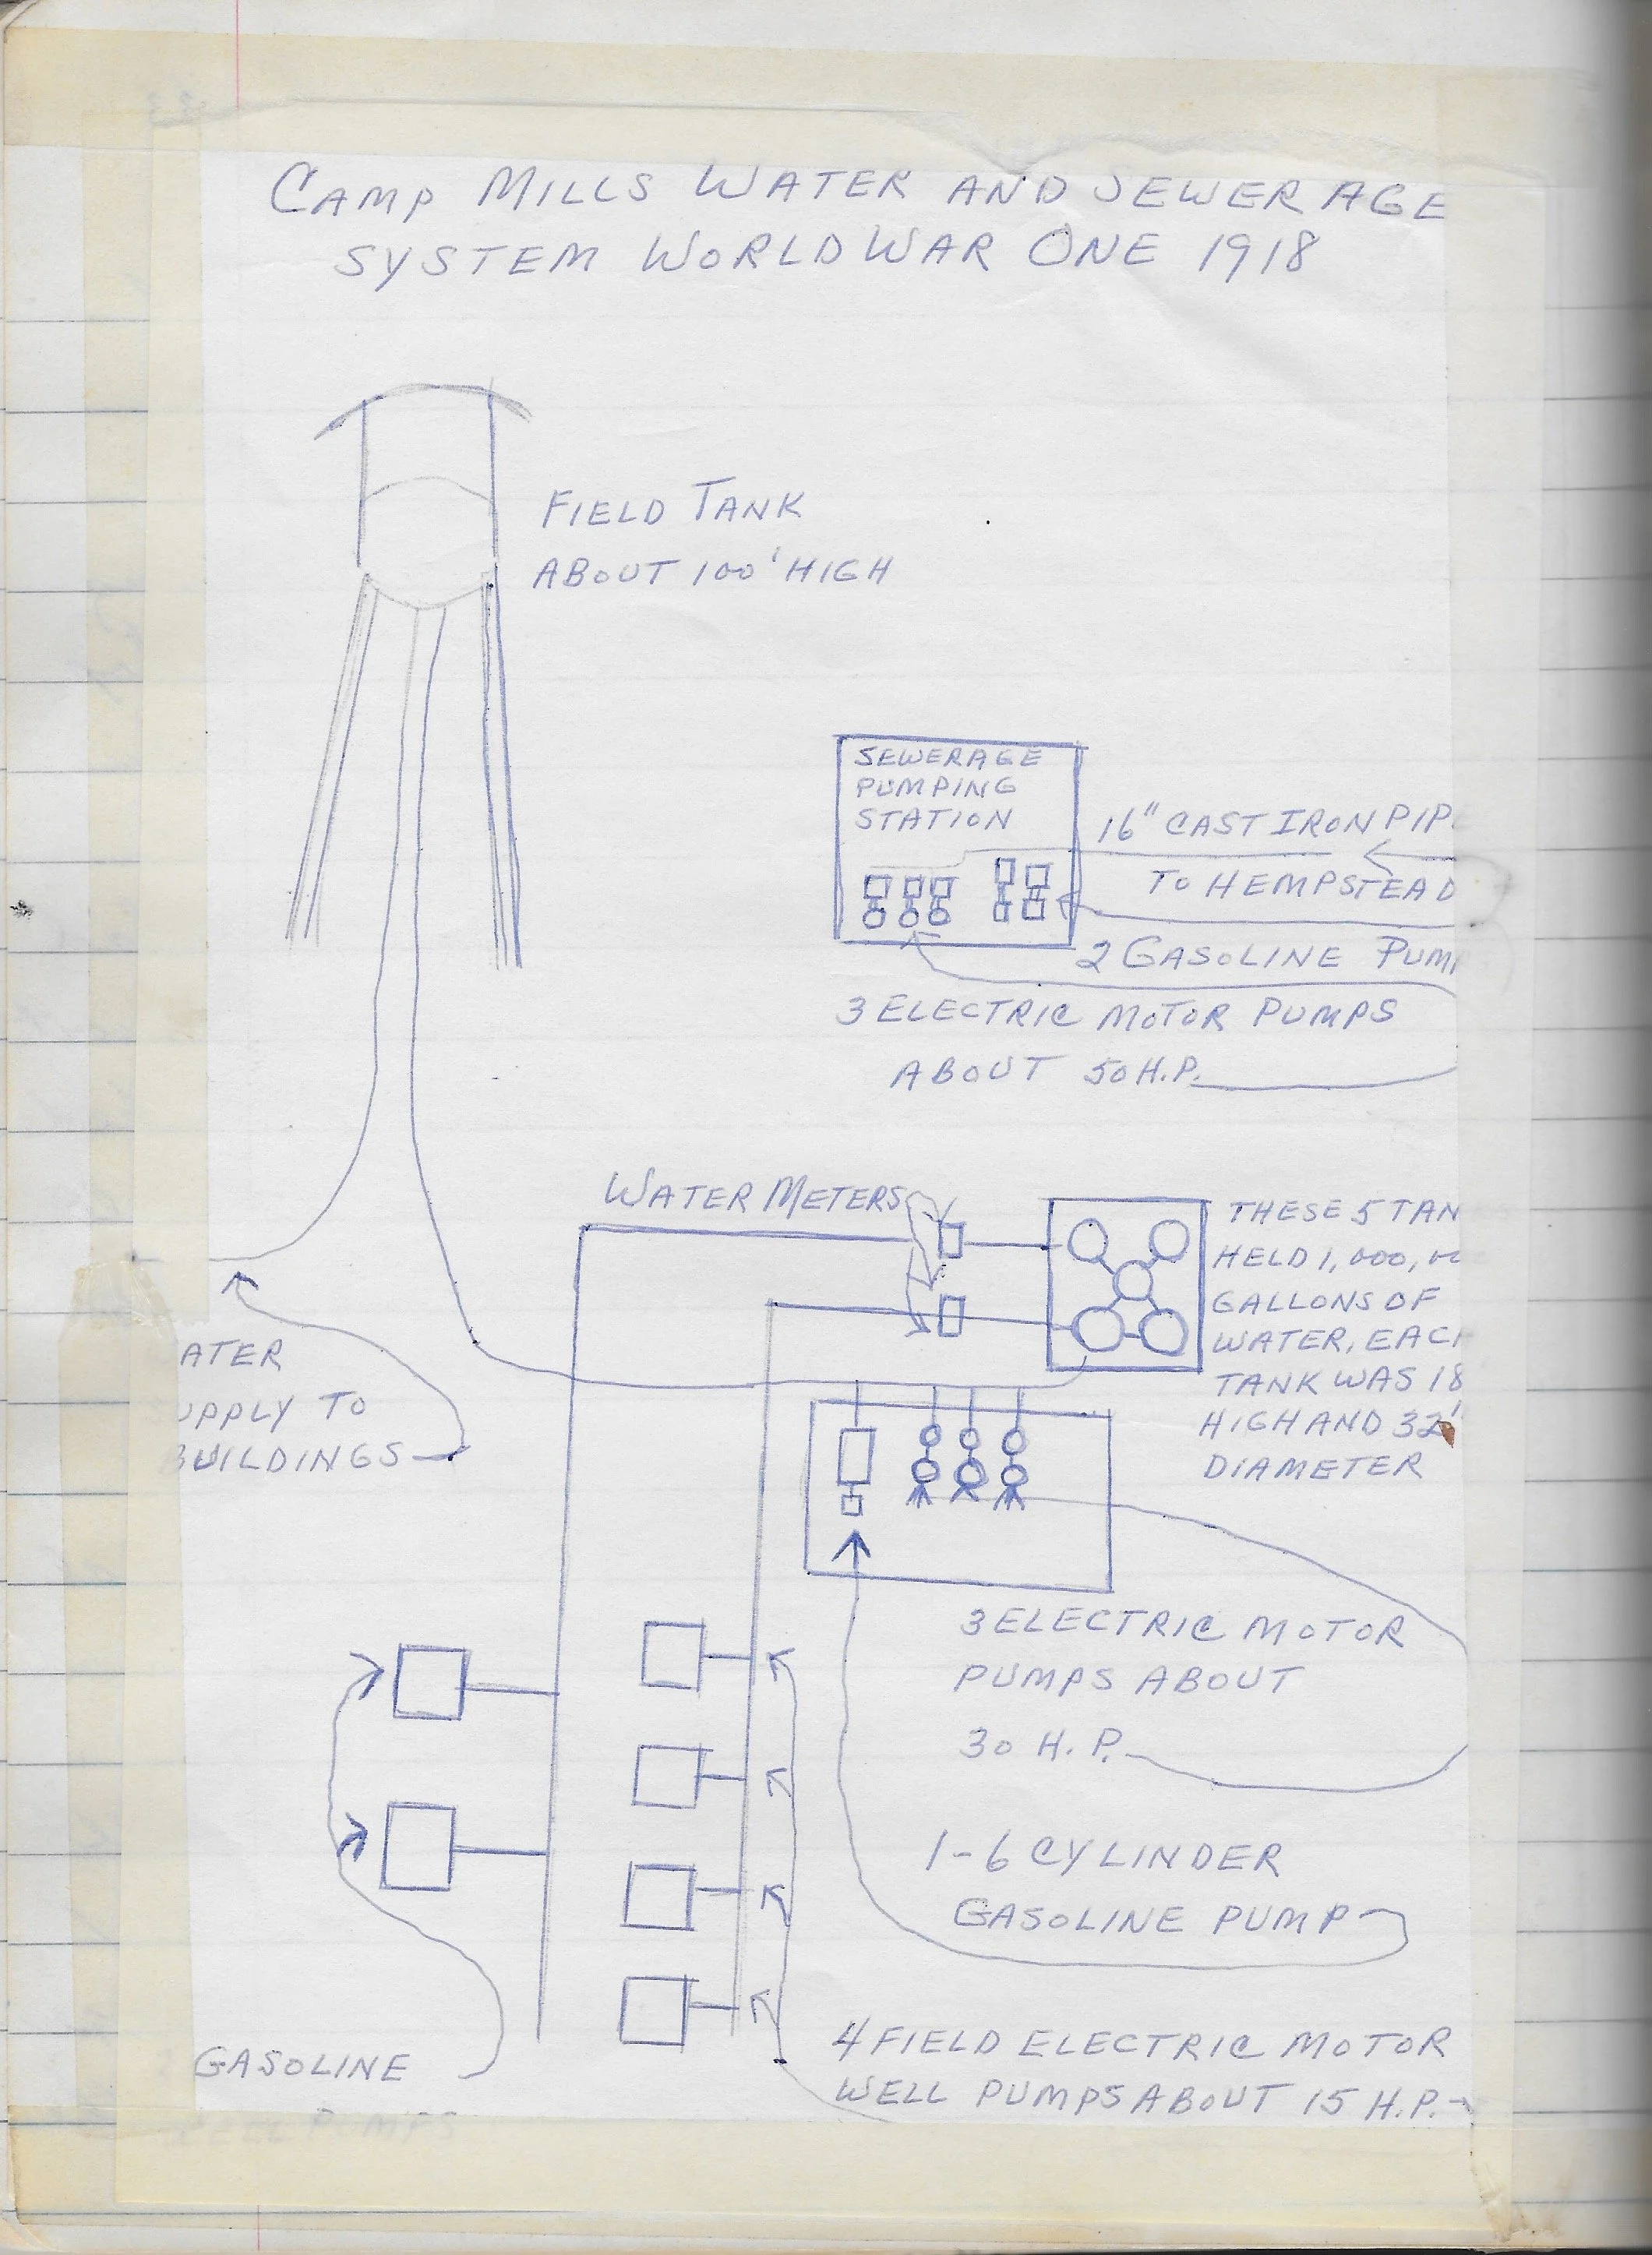 CAMP MILLS WATER AND SEWERAGE
SYSTEM WORLD WAR ONE 1918
FIELD TANK
ABOUT 100' HIGH
SEWERAGE
PUMPING
STATION
16" CAST IRON PIP
TO HEMPSTEAD
2 GASOLINE PUM
3 ELECTRIC MOTOR PUMPS
ABOUT 50 H.P.
WATER METERS
THESE 5 TAN
HELD 1,000,00
GALLONS OF
WATER, EACH
TANK WAS 18
HIGH AND 32'
DIAMETER
ATER
UPPLY TO
BUILDINGS
3 ELECTRIC MOTOR
PUMPS ABOUT
30 H.P.
1-6 CYLINDER
GASOLINE PUMP
4 FIELD ELECTRIC MOTOR
WELL PUMPS ABOUT 15 H.P.
GASOLINE
WELL PUMPS